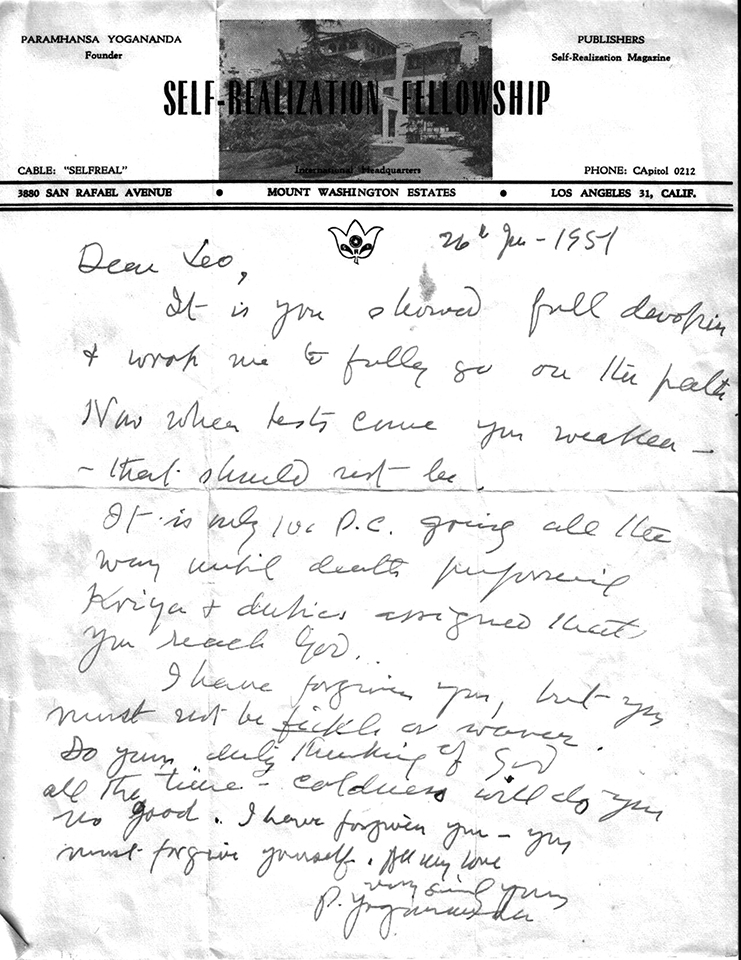 PARAMHANSA YOGANANDA
Founder
PUBLISHERS
Self-Realization Magazine
SELF-REALIZATION FELLOWSHIP
International Headquarters
CABLE: "SELFREAL"
PHONE: CApitol 0212
3880 SAN RAFAEL AVENUE • MOUNT WASHINGTON ESTATES • LOS ANGELES 31, CALIF.
26th 1951
Dear Leo,
It is you showed full devotion
& me to fully go on the path
Now when tests come you weaken –
– that should not be.
It is only 100 P.C. going all the
way until death performing
Kriya & duties assigned that
you reach God.
I have forgiven you, but you
must not be fickle or waver.
Do your duty thinking of God
all the time – coldness will do you
no good. I have forgiven you – you
must forgive yourself. All my love
very sinc yours
P. Yogananda